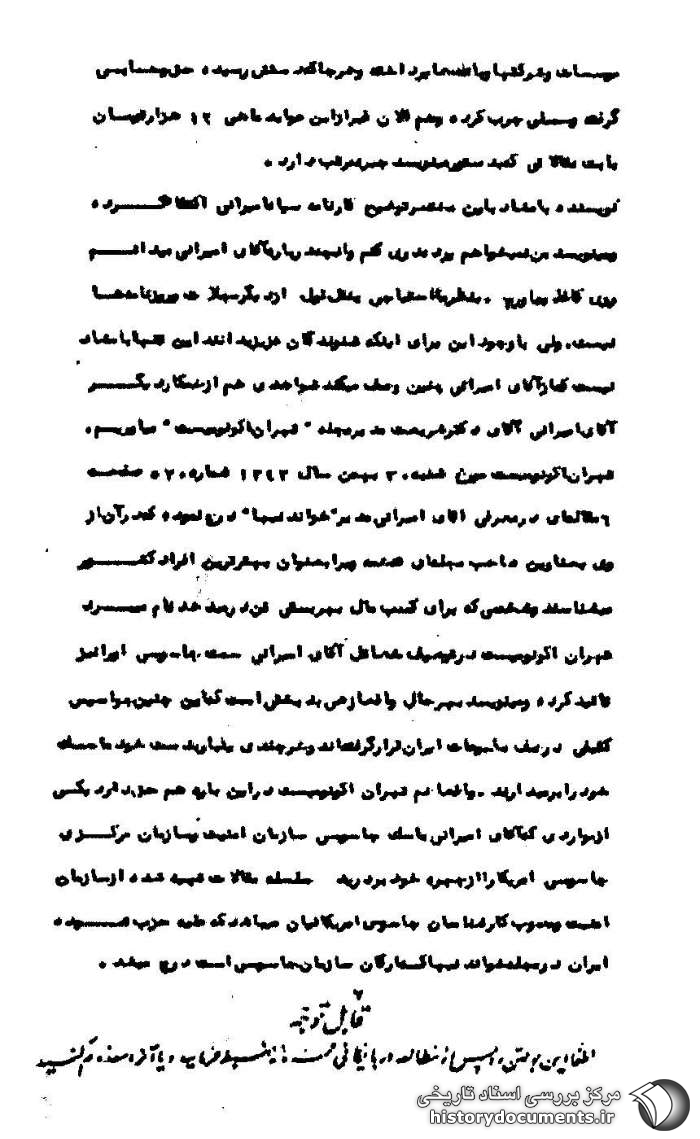 موسسات وشرکتها وبانکها برداشته وهرجاکه دستش رسیده حق وحسابی
گرفته وپولی بجیب کرده وهم الان غیرازاین عوایدماهی ۱۲ هزارتومان
بابت مقالاتی که مینویسد جیره مرتب دارد .
نویسنده بامشاد باین مختصرتوضیح کارنامه سیاه امیرانی اکتفا کـــرده
ومینویسد من نمیخواهم پرده دری کنم وآنچه درباره آقای امیرانی میدانـــم
روی کاغذ بیاورم . بنظرما احتیاجی بنقل قول ازدیگرمجلات وروزنامه ها
نیست، ولی باوجوداین برای اینکه شنوندگان عزیزبدانند این تنهابامشاد
نیست که ازآقای امیرانی چنین وصف میکند شواهدی هم ازهمکاردیگـــر
آقای امیرانی آقای دکترشریعت مدیرمجله " تهران اکونومیست " میآوریم.
تهران اکونومیست مورخ شنبه ۳۰ بهمن سال ۱۳۴۳ شماره ۵۷۰ صفحه
۶ مقاله ای درمعرفی آقای امیرانی مدیر"خواندنیها" درج نموده که درآن از
وی بعناوین صاحب مجله ای که همه ویرابعنوان افراد کشـــور
میشناسند وشخصی که برای کسب مال بهر تن درمیدهد نام میبـــرد
تهران اکونومیست درتوصیف خصائل آقای امیرانی سمت جاسوسی اورانیز
تائید کرده ومینویسد بهرحال واقعا زهی بدبختی است که این چنین جواسیس
کثیفی درصف مطبوعات ایران قرارگرفته اند وهرچندی یکباربدست خود ماسک
خود را برمیدارند . واقعا هم تهران اکونومیست دراین باره هم حق دارد یکی
ازمواردی که آقای امیرانی ماسک جاسوس سازمان امنیت وسازمان مرکـــزی
جاسوسی امریکا را ازچهره خود برد سلسله مقالات تهیه شده ازسازمان
امنیت کارشناسان جاسوسی امریکائیان میباشد که علیه حزب تـــوده
ایران درمجله خواندنیها که ارگان سازمان جاسوسی است درج میشد .
قابل توجه
لطفا این بولتن را پس از مطالعه در بایگانی ضبط فرمایید و یا آنرا معدوم کنید
مرکز بررسی اسناد تاریخی
historydocuments.ir